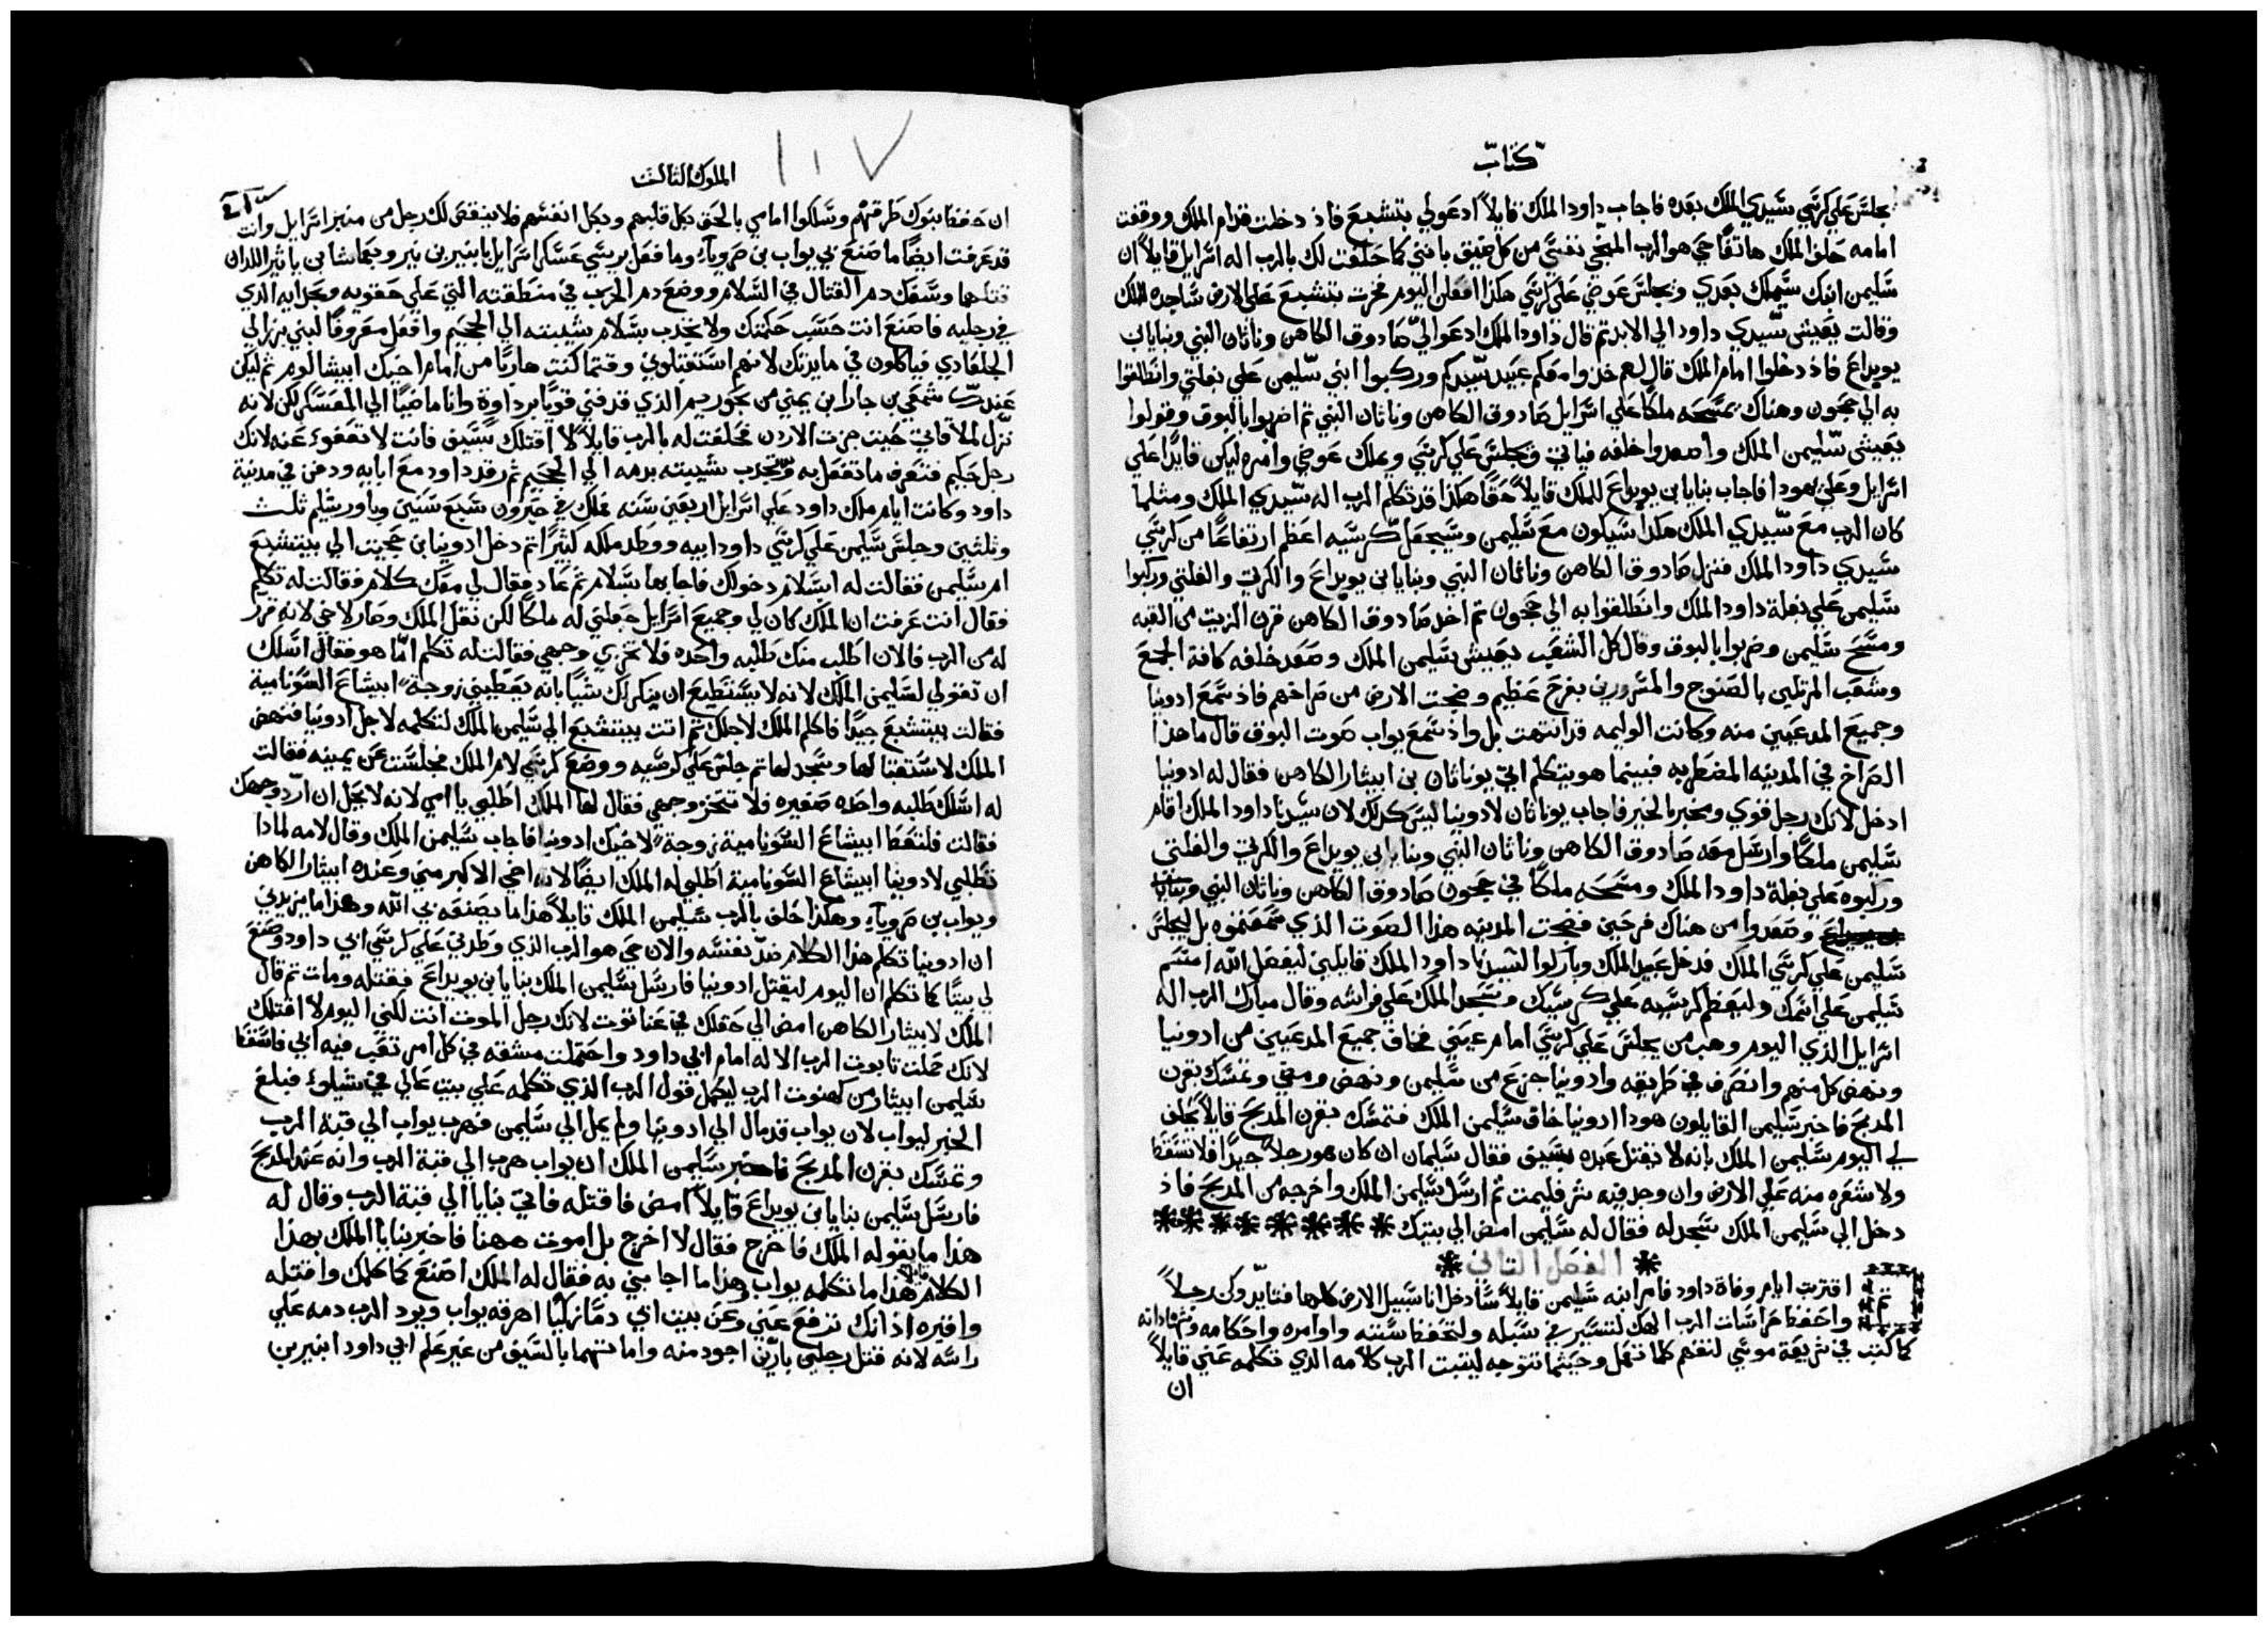 كتاب
يجلس علي كرسي سيدي الملك بعده فاجاب داود الملك قايلاً ادعو لي بتشبع فاذ دخلت قدام الملك ووقفت
امامه حلف الملك هاتفًا حي هو الرب المنجي نفسي من كل ضيق بانني كما حلفت لك بالرب اله اسرايل قايلاً ان
سليمن ابنك سيملك بعدي ويجلس عوضي علي كرسي هكذا افعلن اليوم فخرت بتشبع علي الارض ساجده للملك
وقالت يعيش سيدي داود الي الابد تم قال داود الملك ادعوا الي صادوق الكاهن وناثان النبي وبنايا بن
يويداع فاذ دخلوا امام الملك قال لهم خذوا معكم عبيد سيدكم وركبوا ابني سليمن علي بغلتي وانطلقوا
به الي جيحون وهناك يمسحه ملكًا علي اسرايل صادوق الكاهن وناثان النبي تم اضربوا بالبوق وقولوا
يعيش سليمن الملك واصعدوا خلفه فياتي ويجلس علي كرسي ويملك عوضي وامره ليكن قايدًا علي
اسرايل وعلي يهودا فاجاب بنايا بن يويداع للملك قايلاً حقًا هكذا قد تكلم الرب اله سيدي الملك ومثلما
كان الرب مع سيدي الملك هكذا سيكون مع سليمن وسيجعل كرسيه اعظم ارتفاعًا من كرسي
سيدي داود الملك فنزل صادوق الكاهن وناثان النبي وبنايا بن يويداع والكرتي والفلتي وركبوا
سليمن علي بغلة داود الملك وانطلقوا به الي جيحون تم اخذ صادوق الكاهن قرن الزيت من القبه
ومسح سليمن وضربوا بالبوق وقال كل الشعب يعيش سليمن الملك وصعد خلفه كافة الجمع
وشعب المرتلين بالصنوج والمسرورين بفرح عظيم وضجت الارض من صراخهم فاذ سمع ادونيا
وجميع المدعيين منه وكانت الوليمه قد انتهت بل واذ سمع يواب صوت البوق قال ما هذا
الصراخ في المدينه المضطربه فبينما هو يتكلم اتي يوناثان بن ابيثار الكاهن فقال له ادونيا
ادخل لانك رجل قوي ومخبر بالخير فاجاب يوناثان لادونيا ليس كذلك لان سيدنا داود الملك اقام
سليمن ملكًا وارسل معه صادوق الكاهن وناثان النبي وبنايا بن يويداع والكرتي والفلتي
وركبوه علي بغلة داود الملك ومسحه ملكًا في جيحون صادوق الكاهن وناثان النبي
وصعدوا من هناك فرحين فضجت المدينه هذا الصوت الذي سمعتموه بل يجلس
سليمن علي كرسي الملك قد دخل عبيد الملك وباركوا لسيدنا داود الملك قايلين ليفعل الله اسم
سليمن علي اسمك وليعظم كرسيه علي كرسيك وسجد الملك علي فراشه وقال مبارك الرب اله
اسرايل الذي اليوم وهب من يجلس علي كرسي امام عيني فخاف جميع المدعيين من ادونيا
ونهض كل منهم وانصرف في طريقه وادونيا جزع من سليمن ونهض ومضي وتمسك بقرن
المدبح فاخبر سليمن القايلون هوذا ادونيا خاف سليمن الملك فتمسك بقرن المدبح قايلاً يحلف
لي اليوم سليمن الملك بانه لا يقتل عبده بسيف فقال سليمان ان كان هو رجلاً جيدًا فلا تسقط
ولا شعره منه علي الارض وان وجد فيه شر فليمت تم ارسل سليمن الملك واخرجه من المدبح فاذ
دخل الي سليمن الملك سجد له فقال له سليمن امض الي بيتك
الفصل التاني
اقتربت ايام وفاة داود فامر ابنه سليمن قايلاً سادخل انا سبيل الارض كلها فتايد وكن رجلاً
واحفظ حراسات الرب الهك لتسير في سبله ولتحفظ سننه واوامره واحكامه وشهاداته
كما كتب في شريعة موسي لتفهم كلما تعمل وحيثما تتوجه ليثبت الرب كلامه الذي تكلمه عني قايلاً
ان
الملوك الثالث
١٠٧
ان حفظ بنوك طرقهم وسلكوا امامي بالحق بكل قلبهم وبكل انفسهم فلا ينقص لك رجل من منبر اسرايل وانت
قد عرفت ايضًا ما صنع بي يواب بن صرويا وما فعل بريسي عسكر اسرايل بابنير بن نير وبعماشا بن ياثر اللذان
قتلهما وسفك دم القتال في السلام ووضع دم الحرب في منطقته التي علي حقويه وبحدايه الذي
في رجليه فاصنع انت حسب حكمتك ولا تحدب بسلام شيبته الي الجحيم وافعل معروفًا لبني برزالي
الجلعادي فياكلون في مايدتك لانهم استقبلوني وقتما كنت هاربًا من امام اخيك ابيشالوم تم ليكن
عندك شمعي بن جارا بن يمني من بحوريم الذي قدفني قويًا وانا ماضيًا الي المعسكر لكن لانه
نزل لملاقاتي حيث جزت الاردن فحلفت له بالرب قايلاً لا اقتلك بسيف فانت لا تعفو عنه لانك
رجل حكيم فتعرف ما تفعل به وتحدب شيبته بدمه الي الجحيم ثم رقد داود مع ابايه ودفن في مدينة
داود وكانت ايام ملك داود علي اسرايل اربعين سنه ملك في حبرون سبع سنين وباورشليم ثلث
وثلثين وجلس سليمن علي كرسي داود ابيه ووطد ملكه كثيرًا تم دخل ادونيا بن حجيت الي بيتشبع
ام سليمن فقالت له اسلام دخولك فاجابها سلام تم عاد فقال لي معك كلام فقالت له تكلم
فقال انت عرفت ان الملك كان لي وجميع اسرايل جعلني له ملكًا لكن نقل الملك وصار لاخي لانه قرر
له من الرب فالان اطلب منك طلبه واحده فلا تخزي وجهي فقالت له تكلم امّا هو فقال اسلك
ان تقولي لسليمن الملك لانه لا يستطيع ان ينكر لك شيًا بانه يعطيني زوجة ابيشاع السونامية
فقالت بيتشبع جيدًا فاكلم الملك لاجلك تم اتت بيتشبع الي سليمن الملك لتكلمه لاجل ادونيا فنهض
الملك لاستقبالها وسجد لها تم جلس علي كرسيه ووضع كرسي لام الملك فجلست عن يمينه فقالت
له اسلك طلبه واحده صغيره فلا تخز وجهي فقال لها الملك اطلبي يا امي لانه لا يحل ان اردّ وجهك
فقالت فلتعطا ابيشاع السونامية زوجة لاخيك ادونيا فاجاب سليمن الملك وقال لامه لماذا
تطلبي لادونيا ابيشاع السونامية اطلبي له الملك ايضًا لانه اخي الاكبر مني وعنده ابيثار الكاهن
ويواب بن صرويا وهكذا حلف بالرب سليمن الملك قايلاً هذا ما يصنعه بي الله وهذا ما يزيدني
ان ادونيا تكلم هذا الكلام ضدّ نفسه والان حي هو الرب الذي وطدني علي كرسي ابي داود وصنع
لي بيتًا كما تكلم ان اليوم ليقتل ادونيا فارسل سليمن الملك بنايا بن يويداع فقتله ومات تم قال
الملك لابيثار الكاهن امض الي حقلك في عناثوت لانك رجل الموت انت لكني اليوم لا اقتلك
لانك حملت تابوت الرب الاله امام ابي داود واحتملت مشقه في كل امر تعب فيه ابي فاسقط
سليمن ابيثار من كهنوت الرب ليكمل قول الرب الذي تكلمه علي بيت عالي في شيلو فبلغ
الخبر ليواب لان يواب قد مال الي ادونيا ولم يمل الي سليمن فهرب يواب الي قبة الرب
وتمسك بقرن المدبح فاخبر سليمن الملك ان يواب هرب الي قبة الرب وانه عند المدبح
فارسل سليمن بنايا بن يويداع قايلاً امض فاقتله فاتي بنايا الي قبة الرب وقال له
هذا ما يقوله الملك فاخرج فقال لا اخرج بل اموت ههنا فاخبر بنايا الملك بهذا
الكلام هذا ما تكلمه يواب وهذا ما اجابني به فقال له الملك اصنع كما كلمك واقتله
واقبره اذ انك ترفع عني وعن بيت ابي دمًا زكيًا اهرقه يواب ويرد الرب دمه علي
راسه لانه قتل رجلين بارّين اجود منه واماتهما بالسيف من غير علم ابي داود ابنير بن